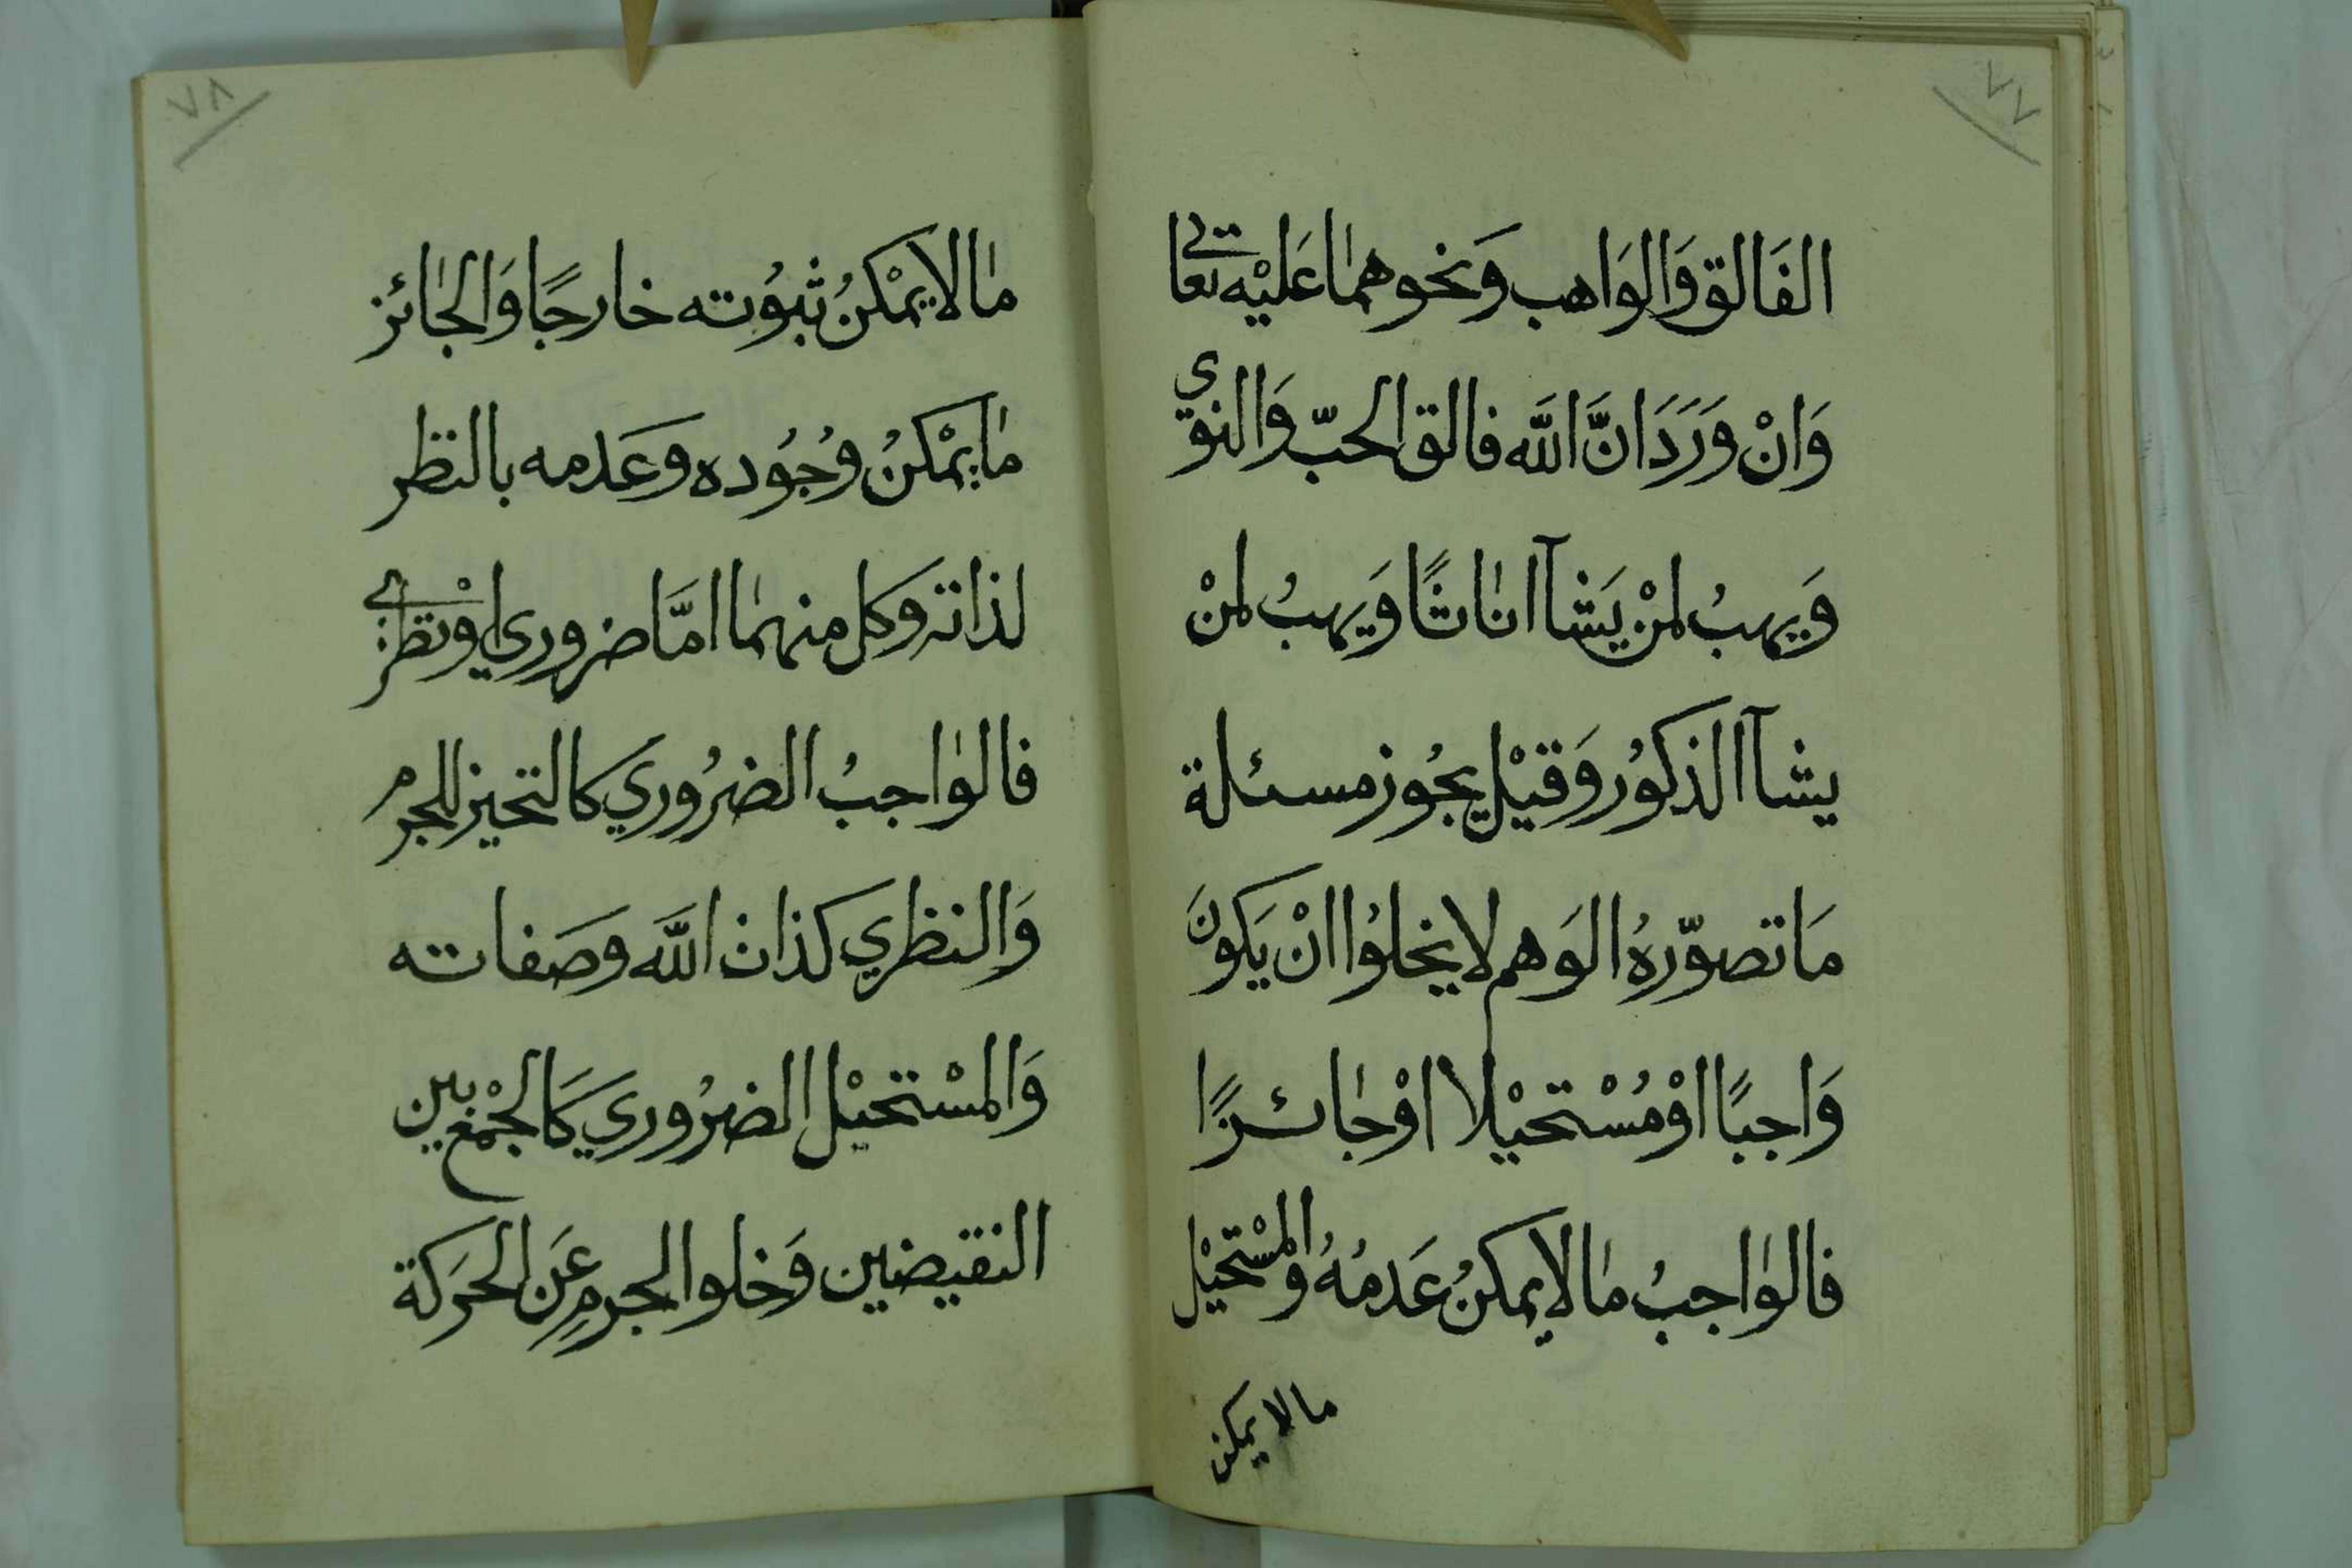 ٧٧
الفَالق وَالوَاهب وَنحوهمٰا عَليْه تعالى
وَانْ وَرَدَ انَّ اللَّه فالق الحبّ وَالنوى
وَيهبُ لمنْ يَشآ انٰاثًا وَيهبُ لمنْ
يشآ الذكوُر وَقيْل يجُوز مسئلة
مَا تصوّرهُ الوَهم لا يخلوُا انْ يَكونَ
وَاجبًا اوْ مُسْتحيْلا اوْ جٰائزًا
فالوٰاجبُ مٰا لا يمكنُ عَدمُهُ والمسْتحيْل
مالا يمكن
٧٨
مٰا لا يمْكنُ ثبوُته خارجًا وَالجٰائز
مٰا يمْكنُ وُجوُده وَعَدمه بالنظر
لذاته وَكل منهمٰا امَّا ضروري اوْ نظري
فالوٰاجبُ الضرُوري كالتحيز للجرم
وَالنظري كذات اللَّه وصَفاته
وَالمسْتحيْل الضرُوري كَالجْمع بين
النقيضين وَخلوا الجرمِ عَن الحَركة